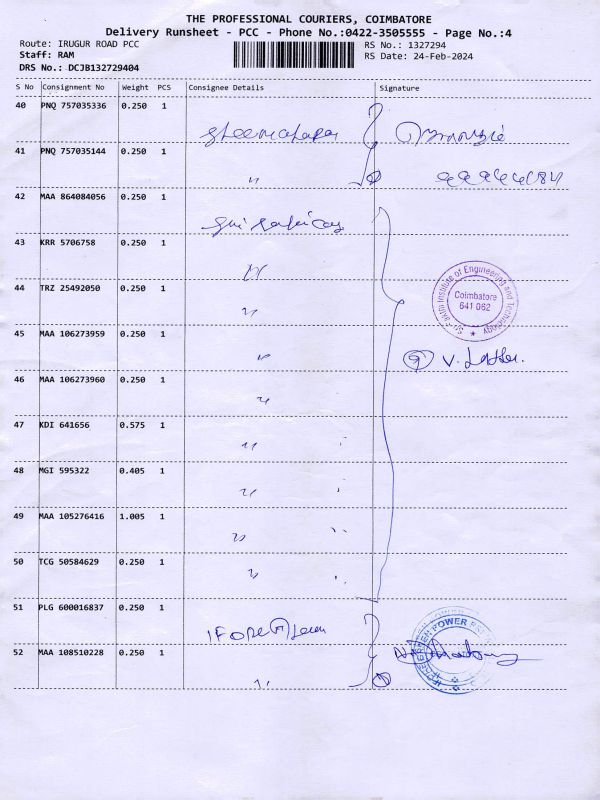 THE PROFESSIONAL COURIERS, COIMBATORE
Delivery Runsheet - PCC - Phone No.:0422-3505555 - Page No.:4
Route: IRUGUR ROAD PCC
RS No.: 1327294
Staff: RAM
RS Date: 24-Feb-2024
DRS No.: DCJB132729404
S No Consignment No Weight PCS Consignee Details Signature
40 PNQ 757035336 0.250 1
41 PNQ 757035144 0.250 1 "
42 MAA 864084056 0.250 1
43 KRR 5706758 0.250 1 "
44 TRZ 25492050 0.250 1 "
Institute of Engineering and Technology
Coimbatore
641 062
45 MAA 106273959 0.250 1 "
46 MAA 106273960 0.250 1 "
47 KDI 641656 0.575 1 "
48 MGI 595322 0.405 1 "
49 MAA 105276416 1.005 1 "
50 TCG 50584629 0.250 1 "
51 PLG 600016837 0.250 1
POWER
52 MAA 108510228 0.250 1 "